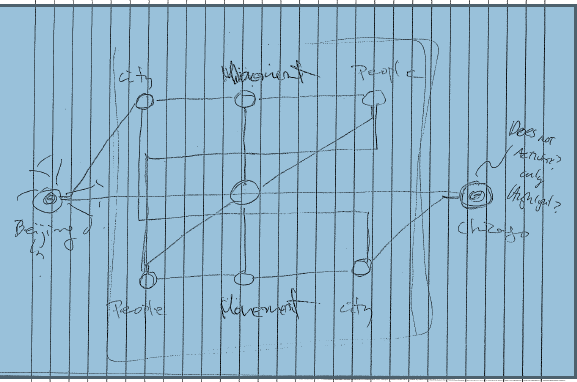 city
Movement
People
Does not
Activate?
only
Highlight?
Beijing
Chicago
People
Movement
city